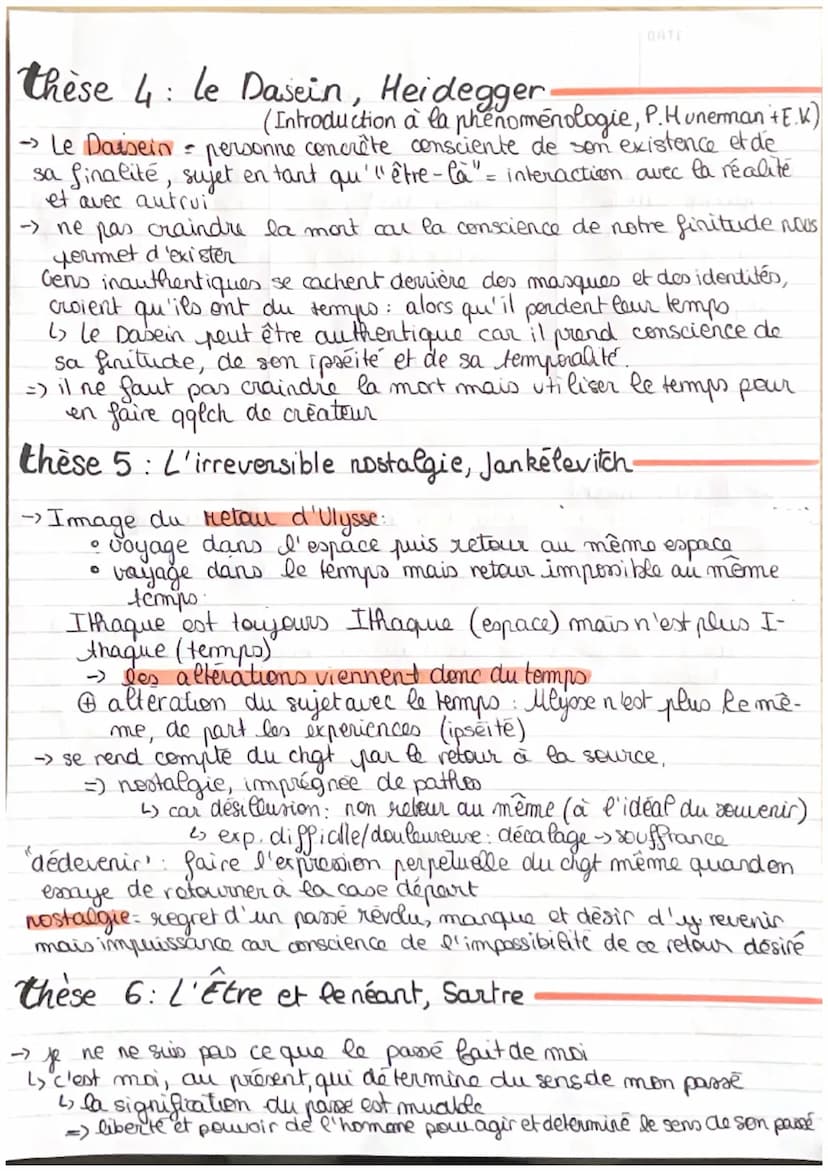 DATE
thèse 4 : le Dasein, Heidegger
(Introduction à la phénoménologie, P.Hunerman +E.K)
→ Le Daisein = personne concrète consciente de son existence et de
sa finalité, sujet en tant qu'"être-là" = interaction avec la réalité
et avec autrui
→ ne pas craindre la mort car la conscience de notre finitude nous
permet d'exister
Gens inauthentiques se cachent derrière des masques et des identités,
croient qu'ils ont du temps : alors qu'il perdent leur temps
↳ le Dasein peut être authentique car il prend conscience de
sa finitude, de son ipséité et de sa temporalité.
=> il ne faut pas craindre la mort mais utiliser le temps pour
en faire qqlch de créateur
thèse 5 : L'irreversible nostalgie, Jankélévitch
→ Image du retour d'Ulysse:
• voyage dans l'espace puis retour au même espace
• voyage dans le temps mais retour impossible au même
temps.
Ithaque est toujours Ithaque (espace) mais n'est plus I-
thaque (temps)
→ les altérations viennent donc du temps
⊕ altération du sujet avec le temps : Ulysse n'est plus le mê-
me, de part les expériences (ipséité)
→ se rend compte du chgt par le retour à la source,
=> nostalgie, imprégnée de pathos
↳ car désillusion: non retour au même (à l'idéal du souvenir)
↳ exp. difficile/douloureuse: décalage → souffrance
"dédevenir": faire l'expression perpetuelle du chgt même quand on
essaye de retourner à la case départ
nostalgie = regret d'un passé révolu, manque et désir d'y revenir
mais impuissance car conscience de l'impossibilité de ce retour désiré
thèse 6: L'Être et le néant, Sartre
→ je ne ne suis pas ce que le passé fait de moi
↳ c'est moi, au présent, qui détermine du sens de mon passé
↳ la signification du passé est muable
=> liberté et pouvoir de l'homme pour agir et determiné le sens de son passé